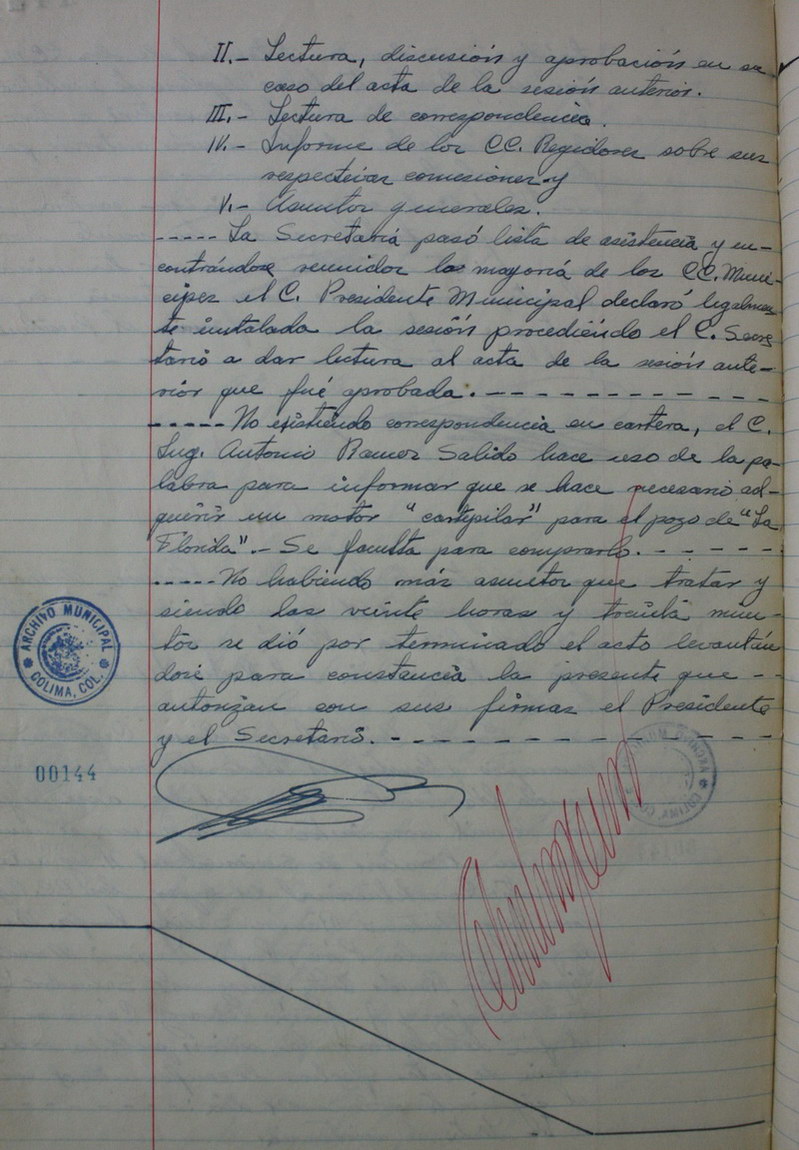 II.- Lectura, discusión y aprobación en su
caso del acta de la sesión anterior.
III.- Lectura de correspondencia.
IV.- Informe de los CC. Regidores sobre sus
respectivas comisiones y
V.- Asuntos generales.
----- La Secretaría pasó lista de asistencia y en-
contrándose reunidos la mayoría de los CC. Muni-
cipes el C. Presidente Municipal declaró legalmen-
te instalada la sesión procediendo el C. Secre
tario a dar lectura al acta de la sesión ante-
rior que fué aprobada. - - - - - - - - - - -
----- No existiendo correspondencia en cartera, el C.
Ing. Antonio Ramos Salido hace uso de la pa-
labra para informar que se hace necesario ad-
quirir un motor "cartepilar" para el pozo de "La
Florida".- Se faculta para comprarlo. - - - - -
----- No habiendo más asuntos que tratar y
siendo las veinte horas y treinta minu-
tos se dió por terminado el acto levantán
dose para constancia la presente que - -
autorizan con sus firmas el Presidente
y el Secretario. - - - - - - - - - - - - -
ARCHIVO MUNICIPAL
COLIMA, COL.
00144